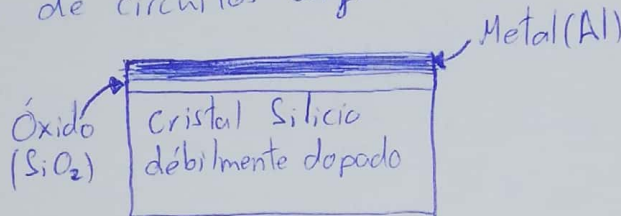 de circuitos
Metal (Al)
Óxido
(SiO₂)
Cristal Silicio
débilmente dopado